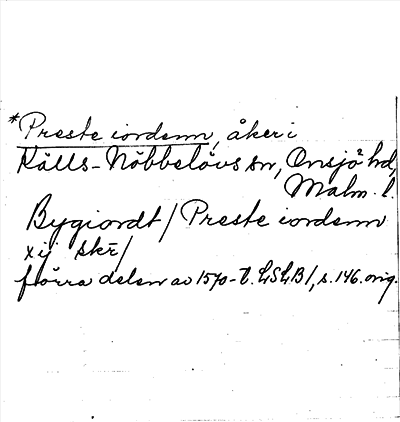 *Preste iordenn, åker i
Källs-Nöbbelövs sn, Onsjö hd,
Malm. l.
Bygiordt / Preste iordenn
xij skr̄ /
förra delen av 1570-t. LSLB/, s. 146. orig.